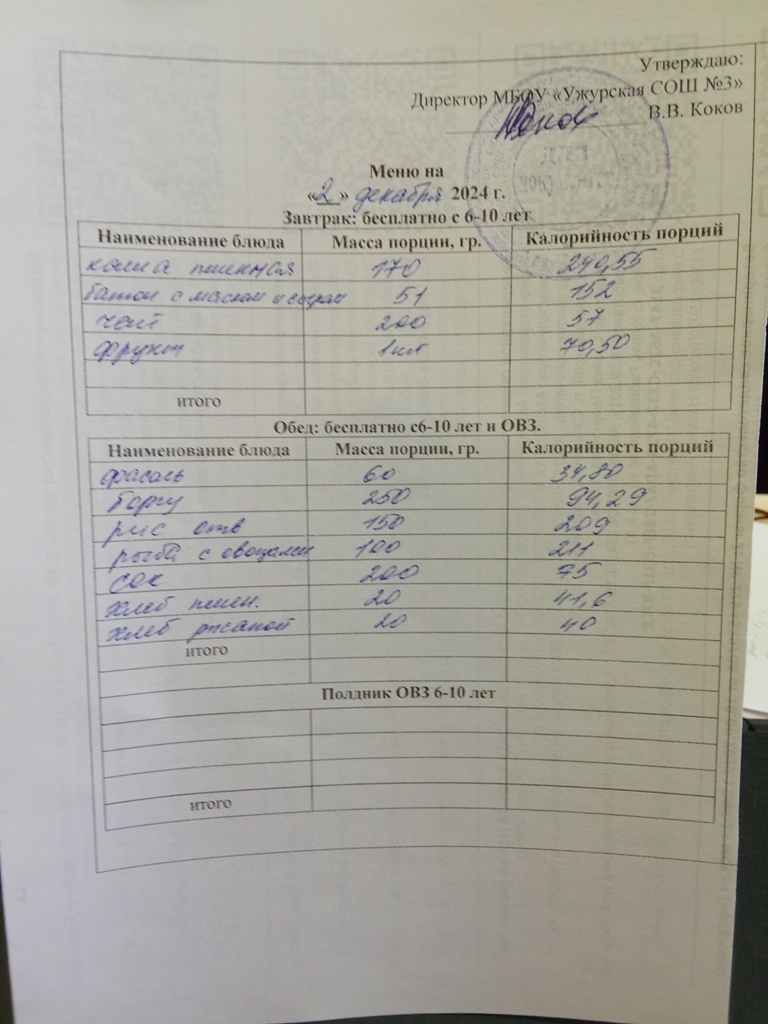 Утверждаю:
Директор МБОУ «Ужурская СОШ №3»
В.В. Коков
Меню на
«2» декабря 2024 г.
Завтрак: бесплатно с 6-10 лет
Наименование блюда Масса порции, гр. Калорийность порций
каша пшенная 170 240,55
батон с маслом и сыром 51 152
чай 200 57
фрукт 1шт 70,50
итого
Обед: бесплатно с6-10 лет и ОВЗ.
Наименование блюда Масса порции, гр. Калорийность порций
фасоль 60 34,80
борщ 250 94,29
рис отв 150 209
рыба с овощами 100 211
сок 200 75
хлеб пшен. 20 41,6
хлеб ржаной 20 40
итого
Полдник ОВЗ 6-10 лет
итого